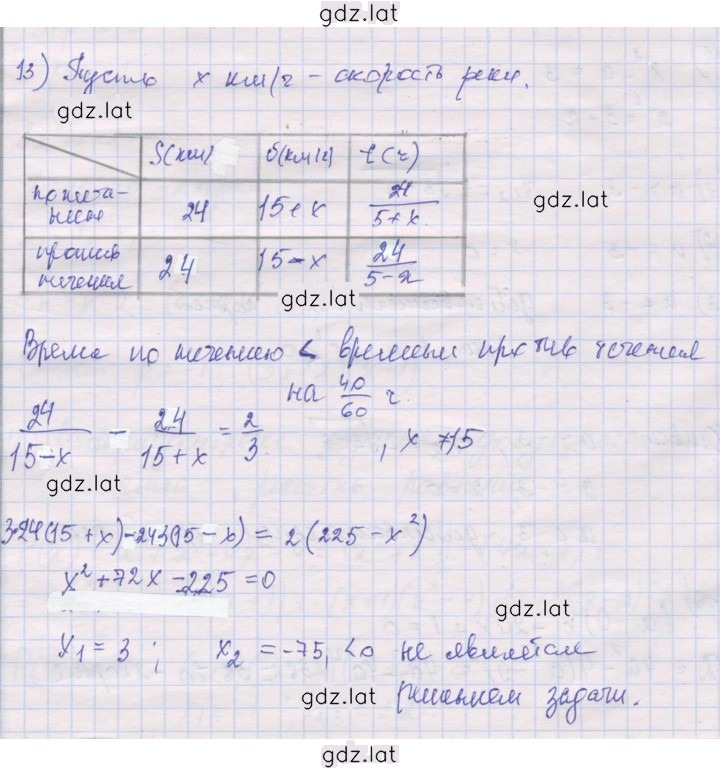 gdz.lat
13) Пусть x км/ч - скорость реки.
gdz.lat
S(км) б(км/ч) t(ч)
по тече-
нию 24 15+x 24/5+x
gdz.lat
против
течения 24 15-x 24/5-x
gdz.lat
Время по течению < времени против течения
на 40/60 ч.
24/15-x - 24/15+x = 2/3 , x ≠ 15
gdz.lat
3·24(15+x)-24·3(15-x) = 2(225-x²)
x² + 72x - 225 = 0
gdz.lat
x₁ = 3 ; x₂ = -75, <0 не является
gdz.lat решением задачи.
gdz.lat